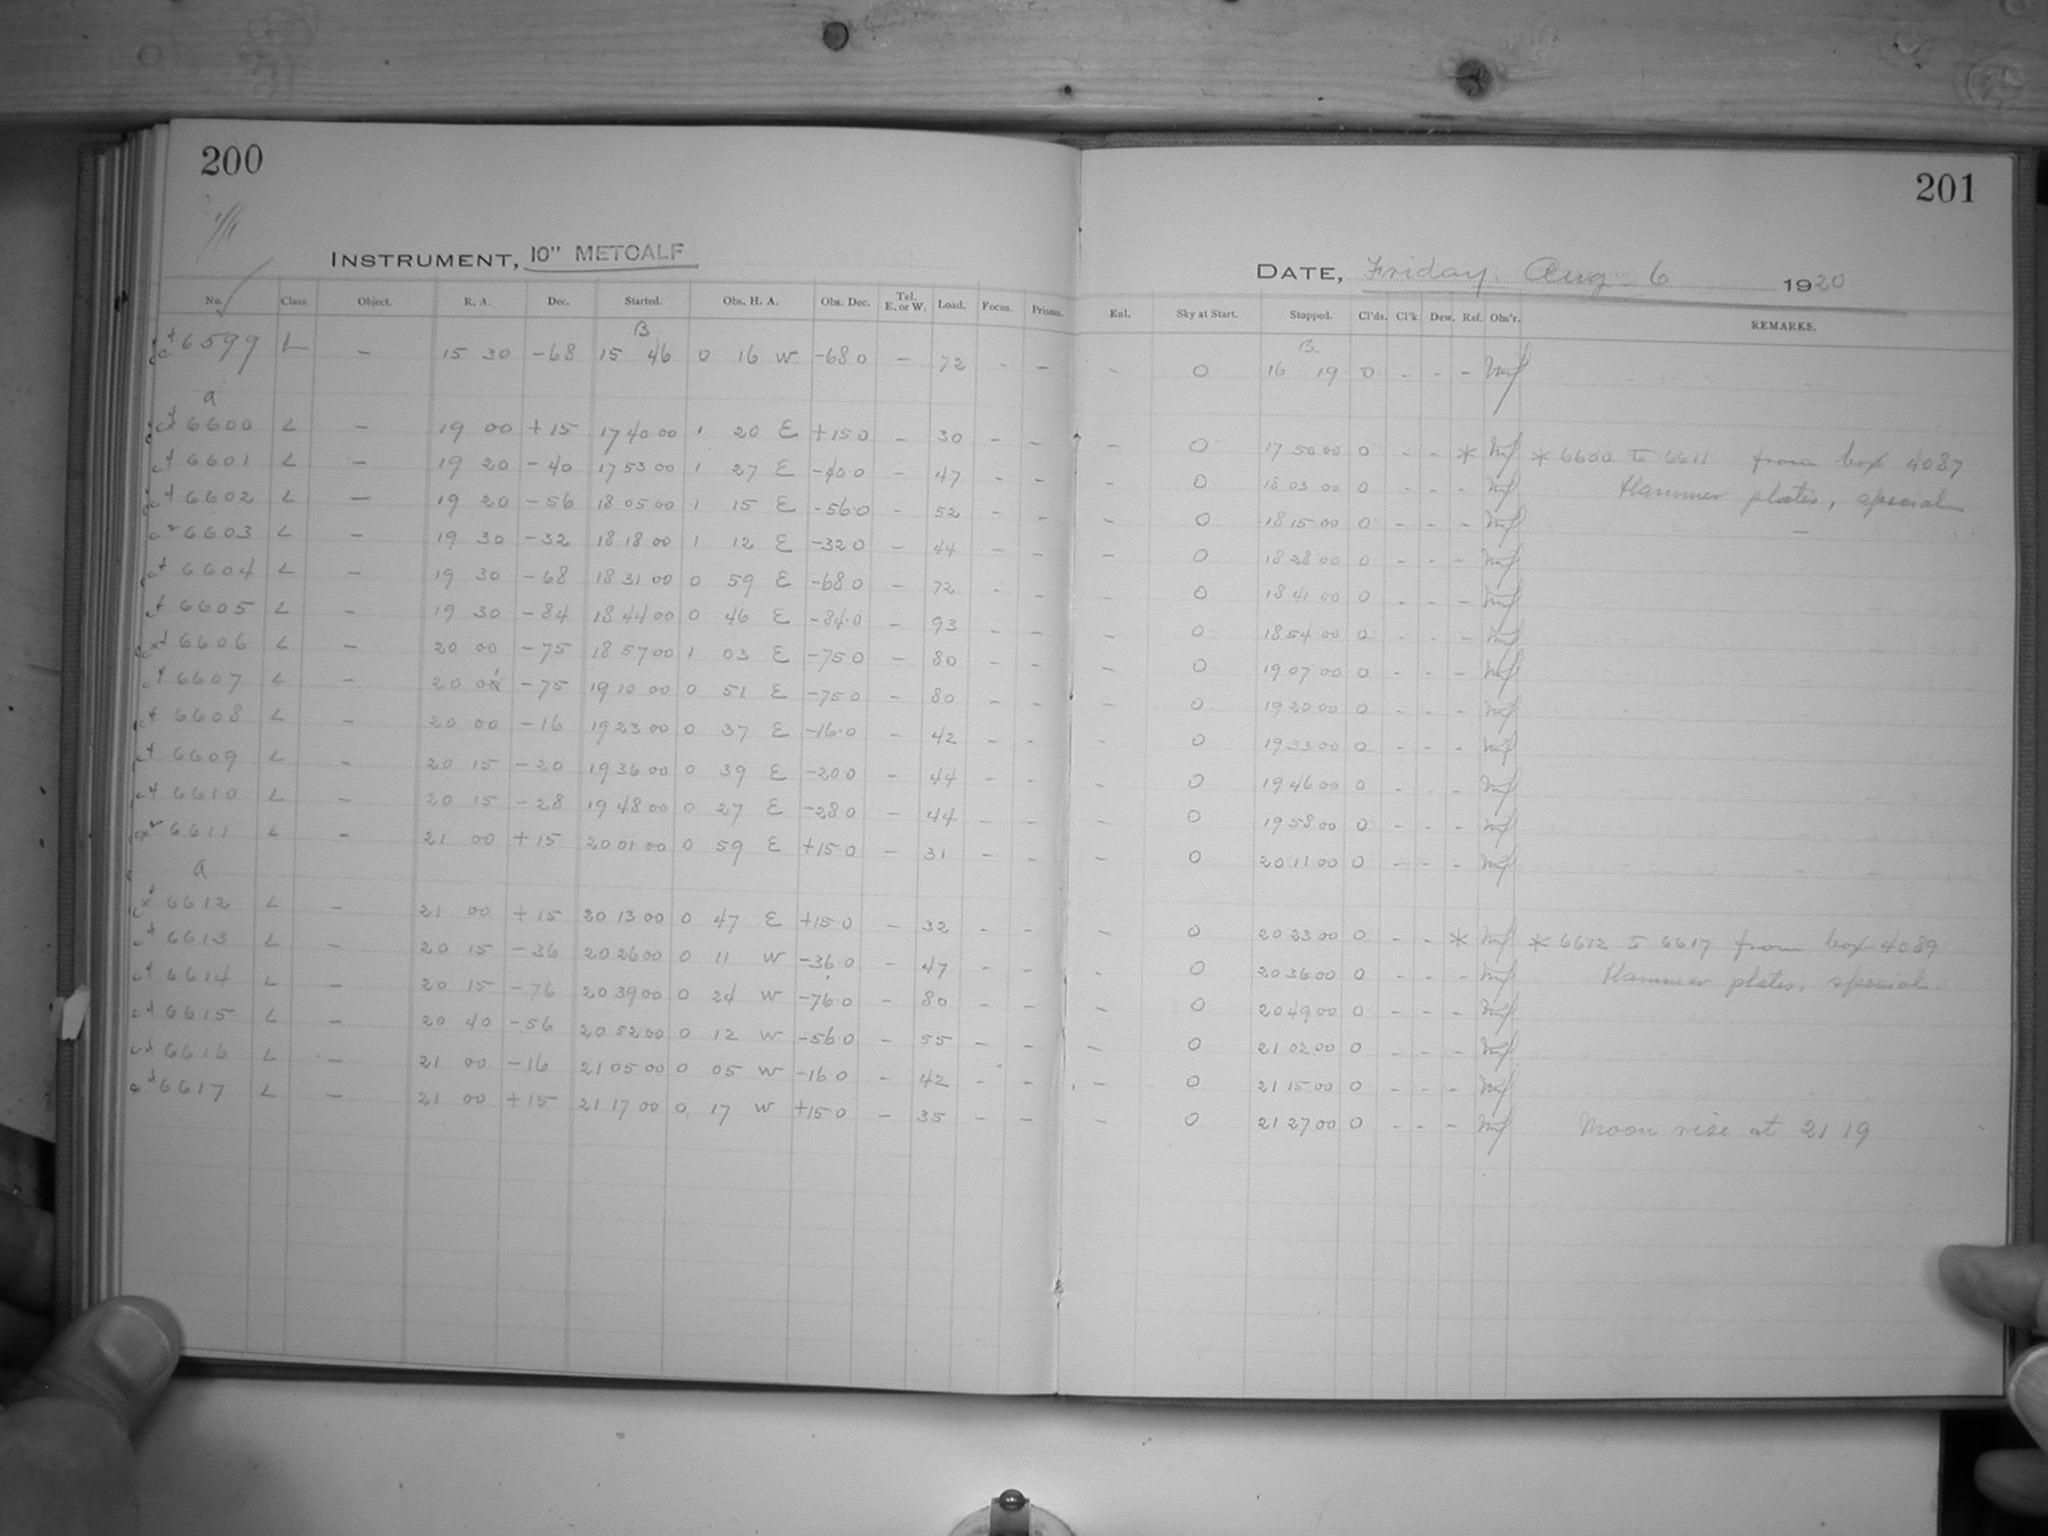 200
201
INSTRUMENT, 10" METCALF
DATE, Friday. Aug 6 1920
No. Class. Object. R. A. Dec. Started. Obs. H. A. Obs. Dec. Tel. E. or W. Load. Focus. Prisms. Enl. Sky at Start. Stopped. Cl'ds. Cl'k. Dew. Ref. Obs'r. REMARKS.
B B.
6599 L – 15 30 -68 15 46 0 16 W -68 0 – 72 - – - 0 16 19 0 - - -
a
6600 L – 19 00 +15 17 40 00 1 20 E +15 0 – 30 – – – 0 17 50 00 0 - - * * 6600 to 6611 from box 4087
6601 L – 19 20 -40 17 53 00 1 27 E -40 0 – 47 - - – 0 18 03 00 0 - - - Hammer plates, special
6602 L – 19 20 -56 18 05 00 1 15 E -56.0 – 52 - - – 0 18 15 00 0 - - - –
6603 L – 19 30 -32 18 18 00 1 12 E -32 0 – 44 - - – 0 18 28 00 0 - - -
6604 L – 19 30 -68 18 31 00 0 59 E -68 0 – 72 - - – 0 18 41 00 0 - - -
6605 L – 19 30 -84 18 44 00 0 46 E -84.0 – 93 - - – 0 18 54 00 0 - - -
6606 L – 20 00 -75 18 57 00 1 03 E -75 0 – 80 - - – 0 19 07 00 0 - - -
6607 L – 20 01 -75 19 10 00 0 51 E -75 0 – 80 - - – 0 19 20 00 0 - - -
6608 L – 20 00 -16 19 23 00 0 37 E -16.0 – 42 - - – 0 19 33 00 0 - - -
6609 L – 20 15 -20 19 36 00 0 39 E -20 0 – 44 - - – 0 19 46 00 0 - - -
6610 L – 20 15 -28 19 48 00 0 27 E -28 0 – 44 - - – 0 19 58 00 0 - - -
6611 L – 21 00 +15 20 01 00 0 59 E +15.0 – 31 - - – 0 20 11 00 0 - - -
a
6612 L – 21 00 +15 20 13 00 0 47 E +15.0 – 32 - - – 0 20 23 00 0 - - * * 6612 to 6617 from box 4089
6613 L – 20 15 -36 20 26 00 0 11 W -36.0 – 47 - - - 0 20 36 00 0 - - - Hammer plates, special.
6614 L – 20 15 -76 20 39 00 0 24 W -76.0 – 80 - - – 0 20 49 00 0 - - -
6615 L – 20 40 -56 20 52 00 0 12 W -56.0 – 55 - - – 0 21 02 00 0 - - -
6616 L – 21 00 -16 21 05 00 0 05 W -16 0 – 42 - - – 0 21 15 00 0 - - -
6617 L – 21 00 +15 21 17 00 0 17 W +15 0 – 35 - - – 0 21 27 00 0 - - - Moon rise at 21 19